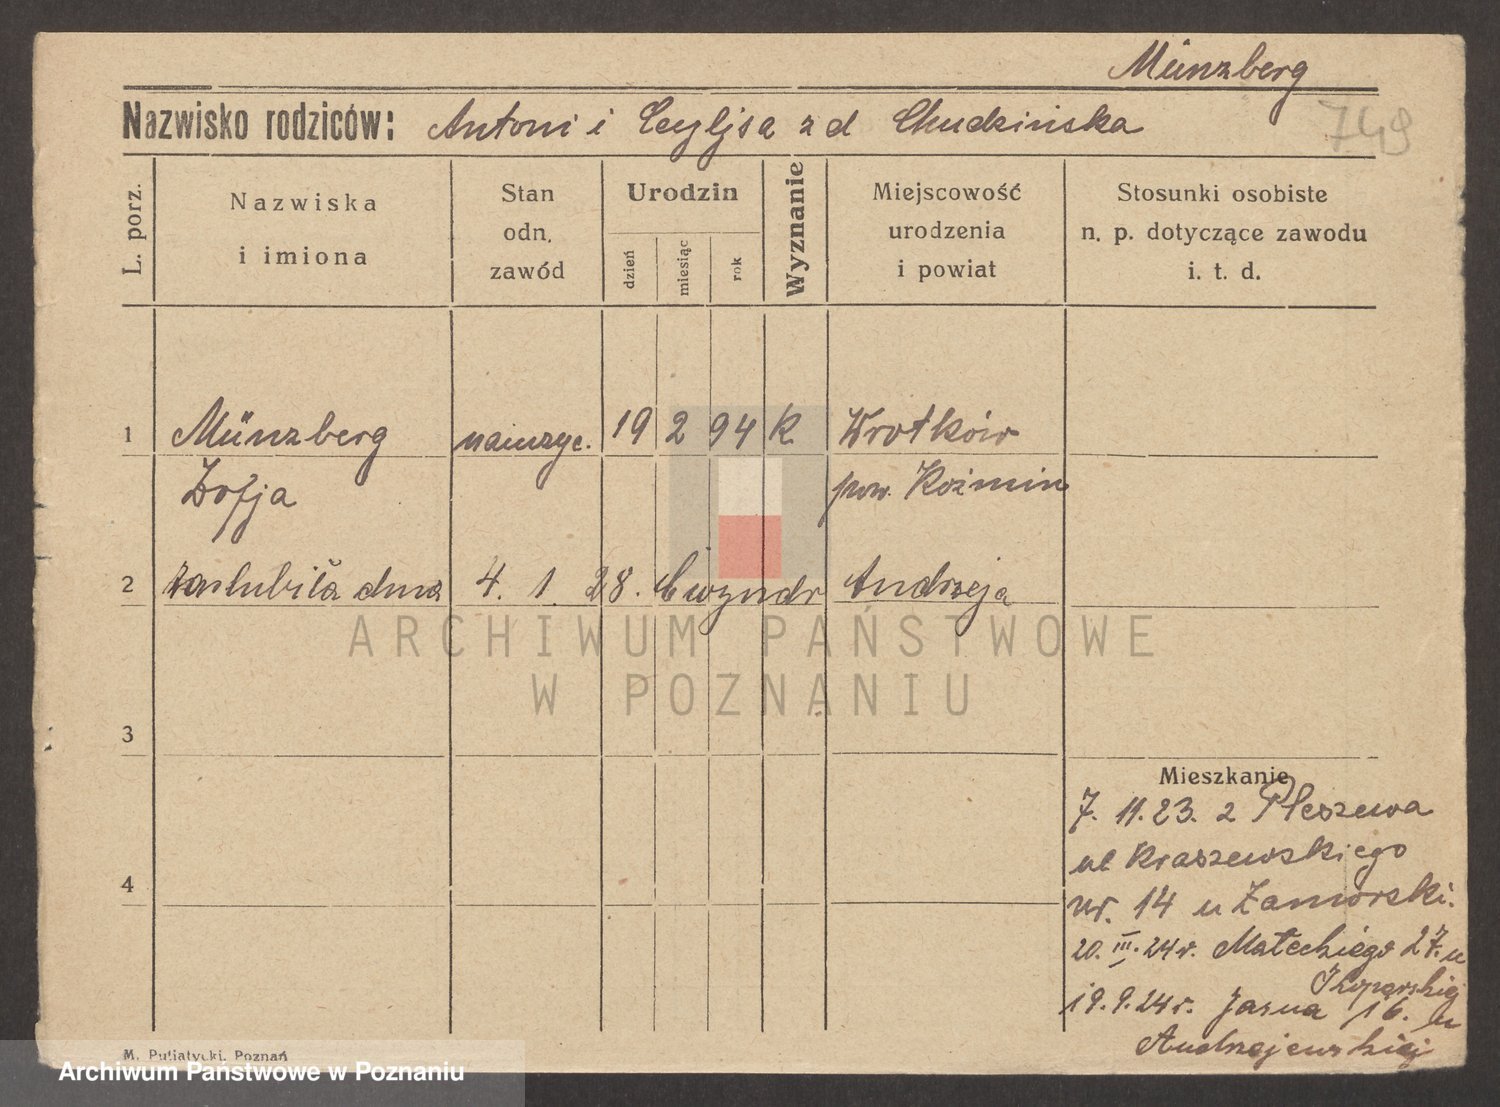 Münzberg
Nazwisko rodziców: Antoni i Cecylja z d Chudzińska
749
L. porz.
Nazwiska
i imiona
Stan
odn.
zawód
Urodzin
dzień
miesiąc
rok
Wyznanie
Miejscowość
urodzenia
i powiat
Stosunki osobiste
n. p. dotyczące zawodu
i. t. d.
1 Münzberg naucyc. 19 2 94 K Wrotków
Zofja pow. Koźmin
2 zaślubiła dnia 4. 1 28. Andrzeja
ARCHIWUM PAŃSTWOWE
W POZNANIU
3
4
Mieszkanie
7. 11. 23. z Pleszewa
ul Kraszewskiego
nr. 14 u Zamorski.
20. III. 24 r. Małeckiego 27. u
19. 9. 24 r. Jasna 16. u
Andrzejewskiej
M. Putiatycki, Poznań
Archiwum Państwowe w Poznaniu